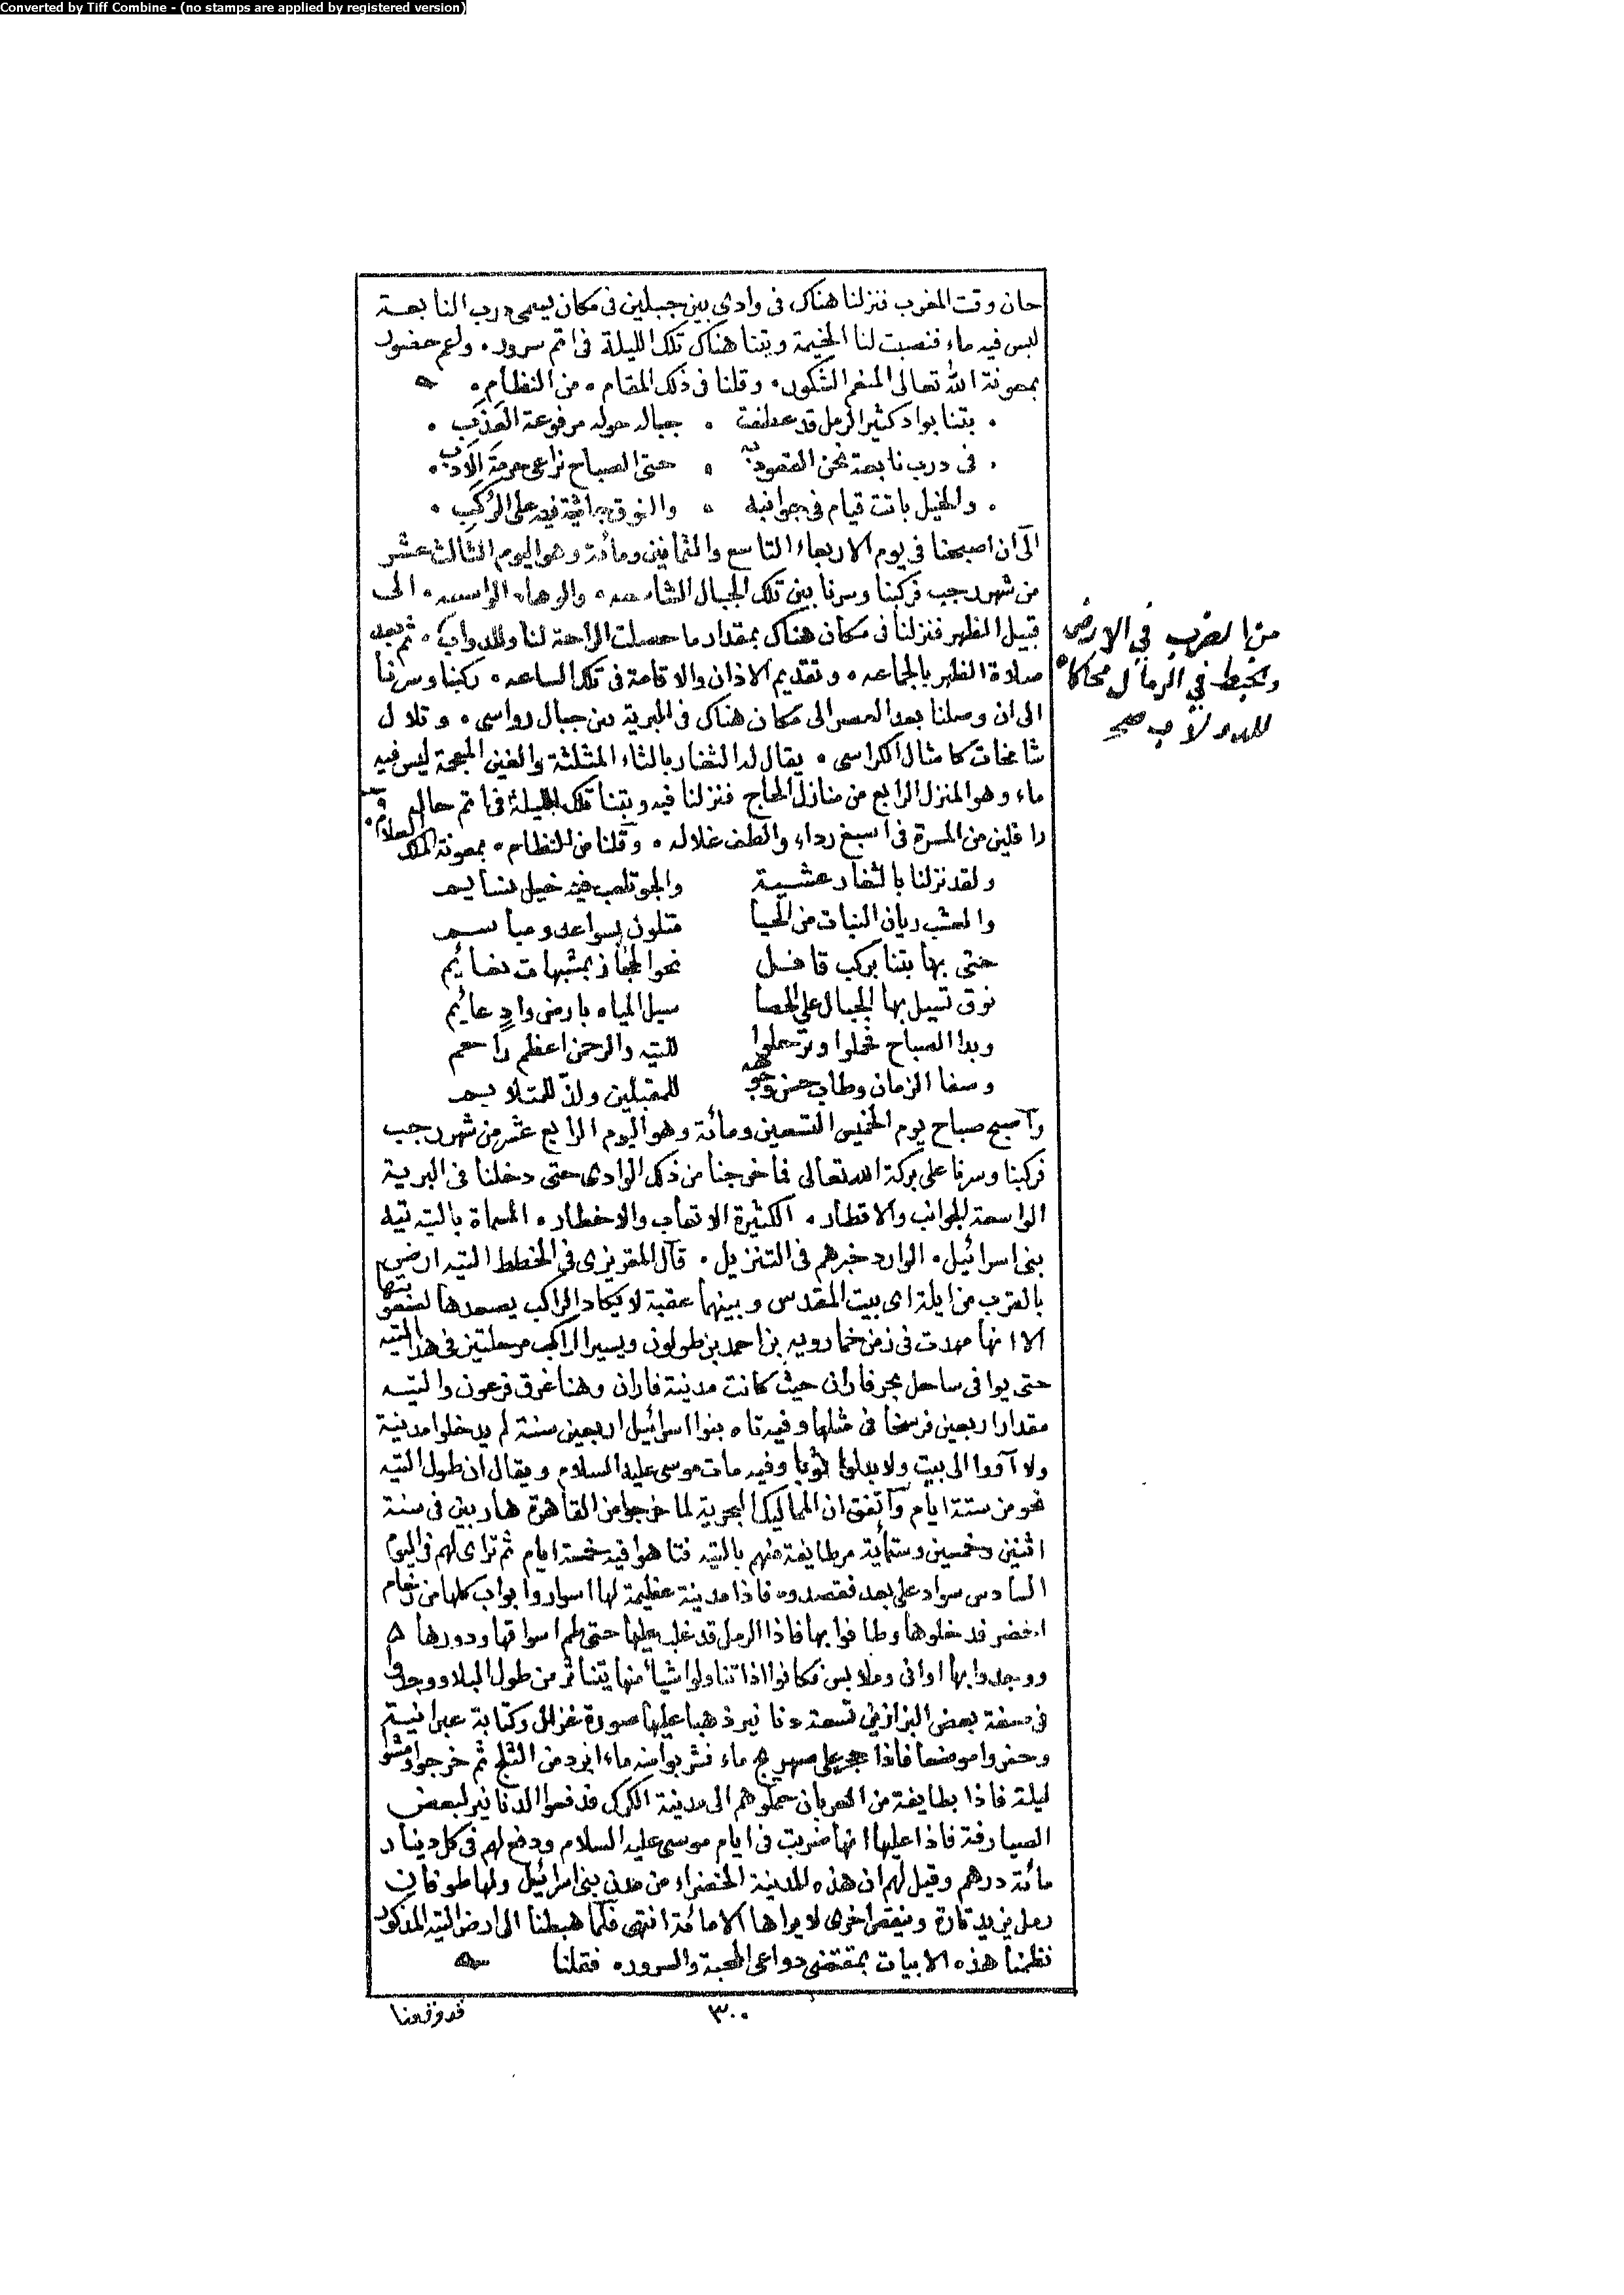 Converted by Tiff Combine - (no stamps are applied by registered version)
حان وقت المغرب فنزلنا هناك فى وادى بين جبلين فى مكان يسمى درب النابعة
ليس فيه ماء فنصبت لنا الخيمة وبتنا هناك تلك الليلة فى اتم سرور ولعم حضور
بمعونة الله تعالى المنعم الشكور وقلنا فى ذلك المقام من النظام
بتنا بواد كثير الرمل قد عطفت جباله حوله مرفوعة العذب
فى درب نابعة نحن القعود به حتى الصباح نراعى حرمة الادب
والخيل باتت قيام فى جوانبه والنوق جاثية فيه على الركب
الى ان اصبحنا فى يوم الاربعاء التاسع والثمانين ومائة وهو اليوم الثالث عشر
من شهر رجب فركبنا وسرنا بين تلك الجبال الشاسعه والوهاد الواسعه الى
قبيل الظهر فنزلنا فى مكان هناك بمقدار ما حصلت الراحة لنا وللدواب ثم بعد
من الضرب في الارض
وتخبط في الرمال محاكاه
للدولاب صح
صلاة الظهر بالجماعه وتقديم الاذان والاقامة فى تلك الساعه ركبنا وسرنا
الى ان وصلنا بعد العصر الى مكان هناك فى البرية بين جبال رواسى وتلال
شامخات كامثال الكراسى يقال له الثغار بالثاء المثلثة والغين المعجمة ليس فيه
ماء وهو المنزل الرابع من منازل الحاج فنزلنا فيه وبتنا تلك الليلة فى اتم حاله
رافلين من المسرة فى اسبغ رداء والطف غلاله وقلنا من النظام بمعونة الملك العلام
ولقد نزلنا بالثغار عشية والجو تلعب فيه خيل نسايم
والعشب ريان النبات من الحيا متلون بسواعد ومباسم
حتى بها بتنا بركب قافل نحو الحجاز بمشبهات نعايم
نوق تسيل بها الجبال على الحصا سيل المياه بارض واد عايم
وبدا الصباح فحملوا وترحلوا للتيه والرحمن اعظم راحم
وصفا الزمان وطاب حسن وجوهه للمقبلين ولذ للمتلايم
واصبح صباح يوم الخميس التسعين ومائة وهو اليوم الرابع عشر من شهر رجب
فركبنا وسرنا على بركة الله تعالى فما خرجنا من ذلك الوادى حتى دخلنا فى البرية
الواسعة الجوانب والاقطار الكثيرة الاتعاب والاخطار المسماة بالتيه تيه
بنى اسرائيل الوارد خبرهم فى التنزيل قال المقريزى فى الخطط التيه ارض
بالقرب من ايلة اى بيت المقدس وبينهما عقبة لا يكاد الراكب يصعدها لصعوبتها
الا انها مهدت فى زمن خمارويه بن احمد بن طولون ويسير الراكب مرحلتين فى هذا التيه
حتى يوافى ساحل بحر فاران حيث كانت مدينة فاران وهنا غرق فرعون والتيه
مقدار اربعين فرسخا فى مثلها وفيه تاه بنوا اسرائيل اربعين سنة لم يدخلوا مدينة
ولا آووا الى بيت ولا بدلوا ثوبا وفيه مات موسى عليه السلام ويقال ان طول التيه
نحو من ستة ايام واتفق ان المماليك البحرية لما خرجوا من القاهرة هاربين فى سنة
اثنين وخمسين وستماية مر طايفة منهم بالتيه فتاهوا فيه خمسة ايام ثم تراى لهم فى اليوم
السادس سواد على بعد فقصدوه فاذا مدينة عظيمة لها اسوار وابواب كلها من رخام
اخضر فدخلوها وطافوا بها فاذا الرمل قد غلب عليها حتى طم اسواقها ودورها
ووجدوا بها اوانى وملابس فكانوا اذا تناولوا شيأ منها يتناثر من طول البلا ووجدوا
فى صفة بعض البزازين تسعة دنانير ذهبا عليها صورة غزال وكتابة عبرانية
وحفروا موضعا فاذا حجر على صهريج ماء فشربوا منه ماء ابرد من الثلج ثم خرجوا ومشوا
ليلة فاذا بطايفة من العربان حملوهم الى مدينة الكرك فدفعوا الدنانير لبعض
الصيارفة فاذا عليها انها ضربت فى ايام موسى عليه السلام ودفع لهم فى كل دينار
مائة درهم وقيل لهم ان هذه المدينة الخضراء من مدن بنى اسرائيل ولها طوفان
رمل يزيد تارة وينقص اخرى لا يراها الا تائه انتهى فلما هبطنا الى ارض التيه المذكور
نظمنا هذه الابيات بمقتضى دواعى المحبة والسرور فقلنا
٣٠٠
قد وقعنا